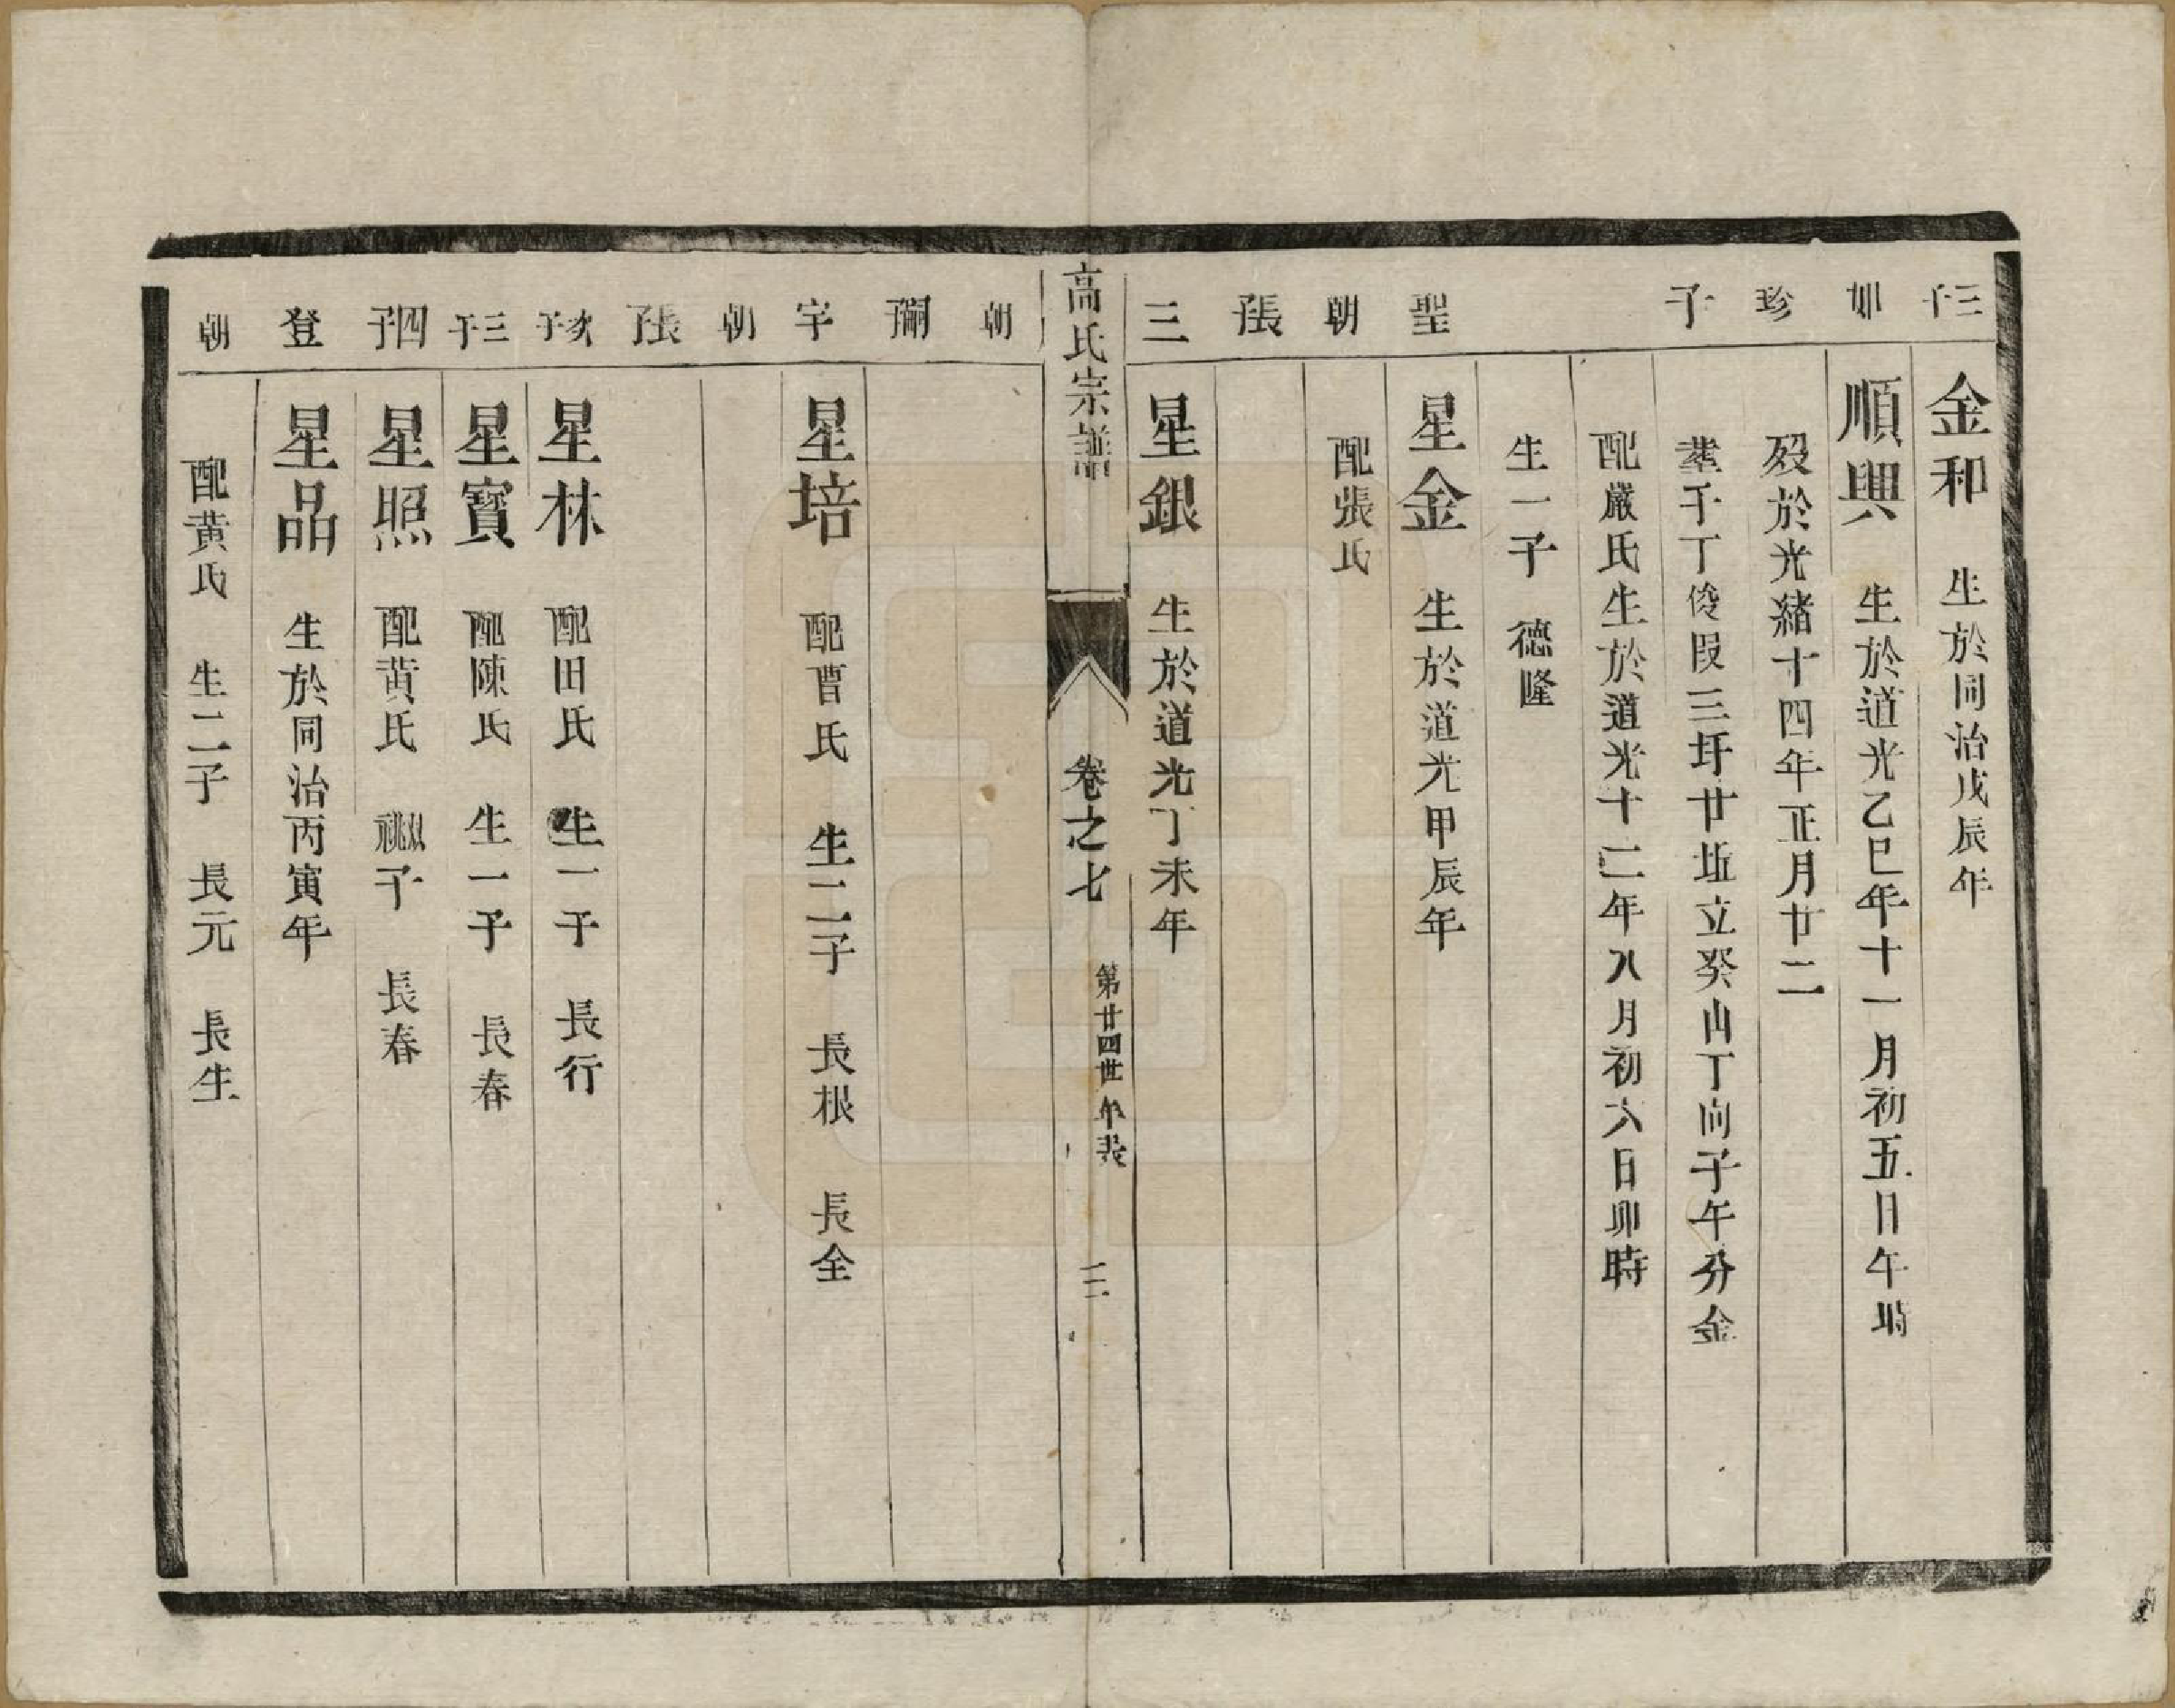 三子 金和 生於同治戊辰年
如 順興 生於道光乙巳年十一月初五日午時
珍 歿於光緒十四年正月廿二
子 塟千丁俊叚三圩廿坵立癸山丁向子午分金
配嚴氏生於道光十二年八月初六日卯時
生一子 德隆
聖 星金 生於道光甲辰年
朝 配張氏
張子
三 星銀 生於道光丁未年
高氏宗譜 卷之七 第廿四世年表 二
朝
彌
字 星培 配曹氏 生二子 長根 長全
朝
張子
次子 星林 配田氏 生一子 長行
三子 星寶 配陳氏 生一子 長春
四子 星照 配黃氏 祧子 長春
登 星品 生於同治丙寅年
朝 配黃氏 生二子 長元 長生